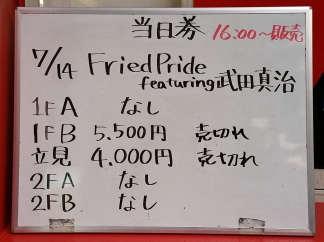 当日券 16:00~販売
7/14 Fried Pride
featuring 武田真治
1F A なし
1F B 5.500円 売切れ
立見 4.000円 売切れ
2F A なし
2F B なし